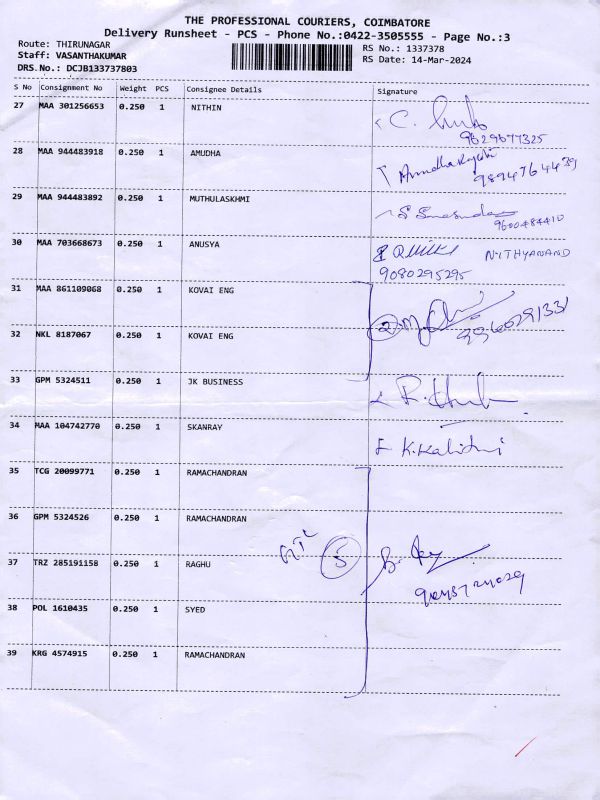 THE PROFESSIONAL COURIERS, COIMBATORE
Delivery Runsheet - PCS - Phone No.:0422-3505555 - Page No.:3
Route: THIRUNAGAR RS No.: 1337378
Staff: VASANTHAKUMAR RS Date: 14-Mar-2024
DRS.No.: DCJB133737803
S No Consignment No Weight PCS Consignee Details Signature
27 MAA 301256653 0.250 1 NITHIN
9629677325
28 MAA 944483918 0.250 1 AMUDHA
9894764439
29 MAA 944483892 0.250 1 MUTHULASKHMI
9600484410
30 MAA 703668673 0.250 1 ANUSYA NITHYANAND
9080295295
31 MAA 861109068 0.250 1 KOVAI ENG
2
32 NKL 8187067 0.250 1 KOVAI ENG
33 GPM 5324511 0.250 1 JK BUSINESS
34 MAA 104742770 0.250 1 SKANRAY
35 TCG 20099771 0.250 1 RAMACHANDRAN
36 GPM 5324526 0.250 1 RAMACHANDRAN
5
37 TRZ 285191158 0.250 1 RAGHU
38 POL 1610435 0.250 1 SYED
39 KRG 4574915 0.250 1 RAMACHANDRAN